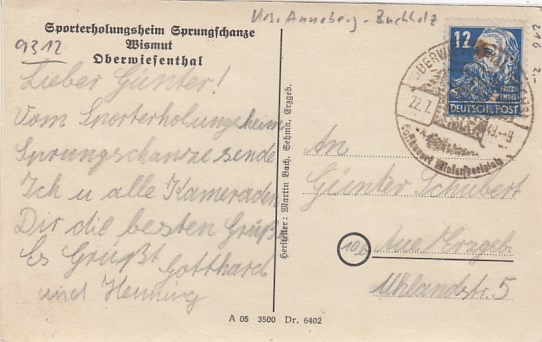 Sporterholungsheim Sprungschanze
Wismut
Oberwiesenthal
9312
Krs. Annaberg-Buchholz
216 2.-
Lieber Günter!
Vom Sporterholungsheim
Sprungschanze sende
Ich u alle Kameraden
Dir die besten Grüße
Es Grüßt Gotthard
und Henning
Hersteller: Martin Bach, Sehma, Erzgeb.
A 05 3500 Dr. 6402
12
DEUTSCHE POST
22.7.
An
Günter Schubert
10b Aue Erzgeb.
Uhlandstr. 5